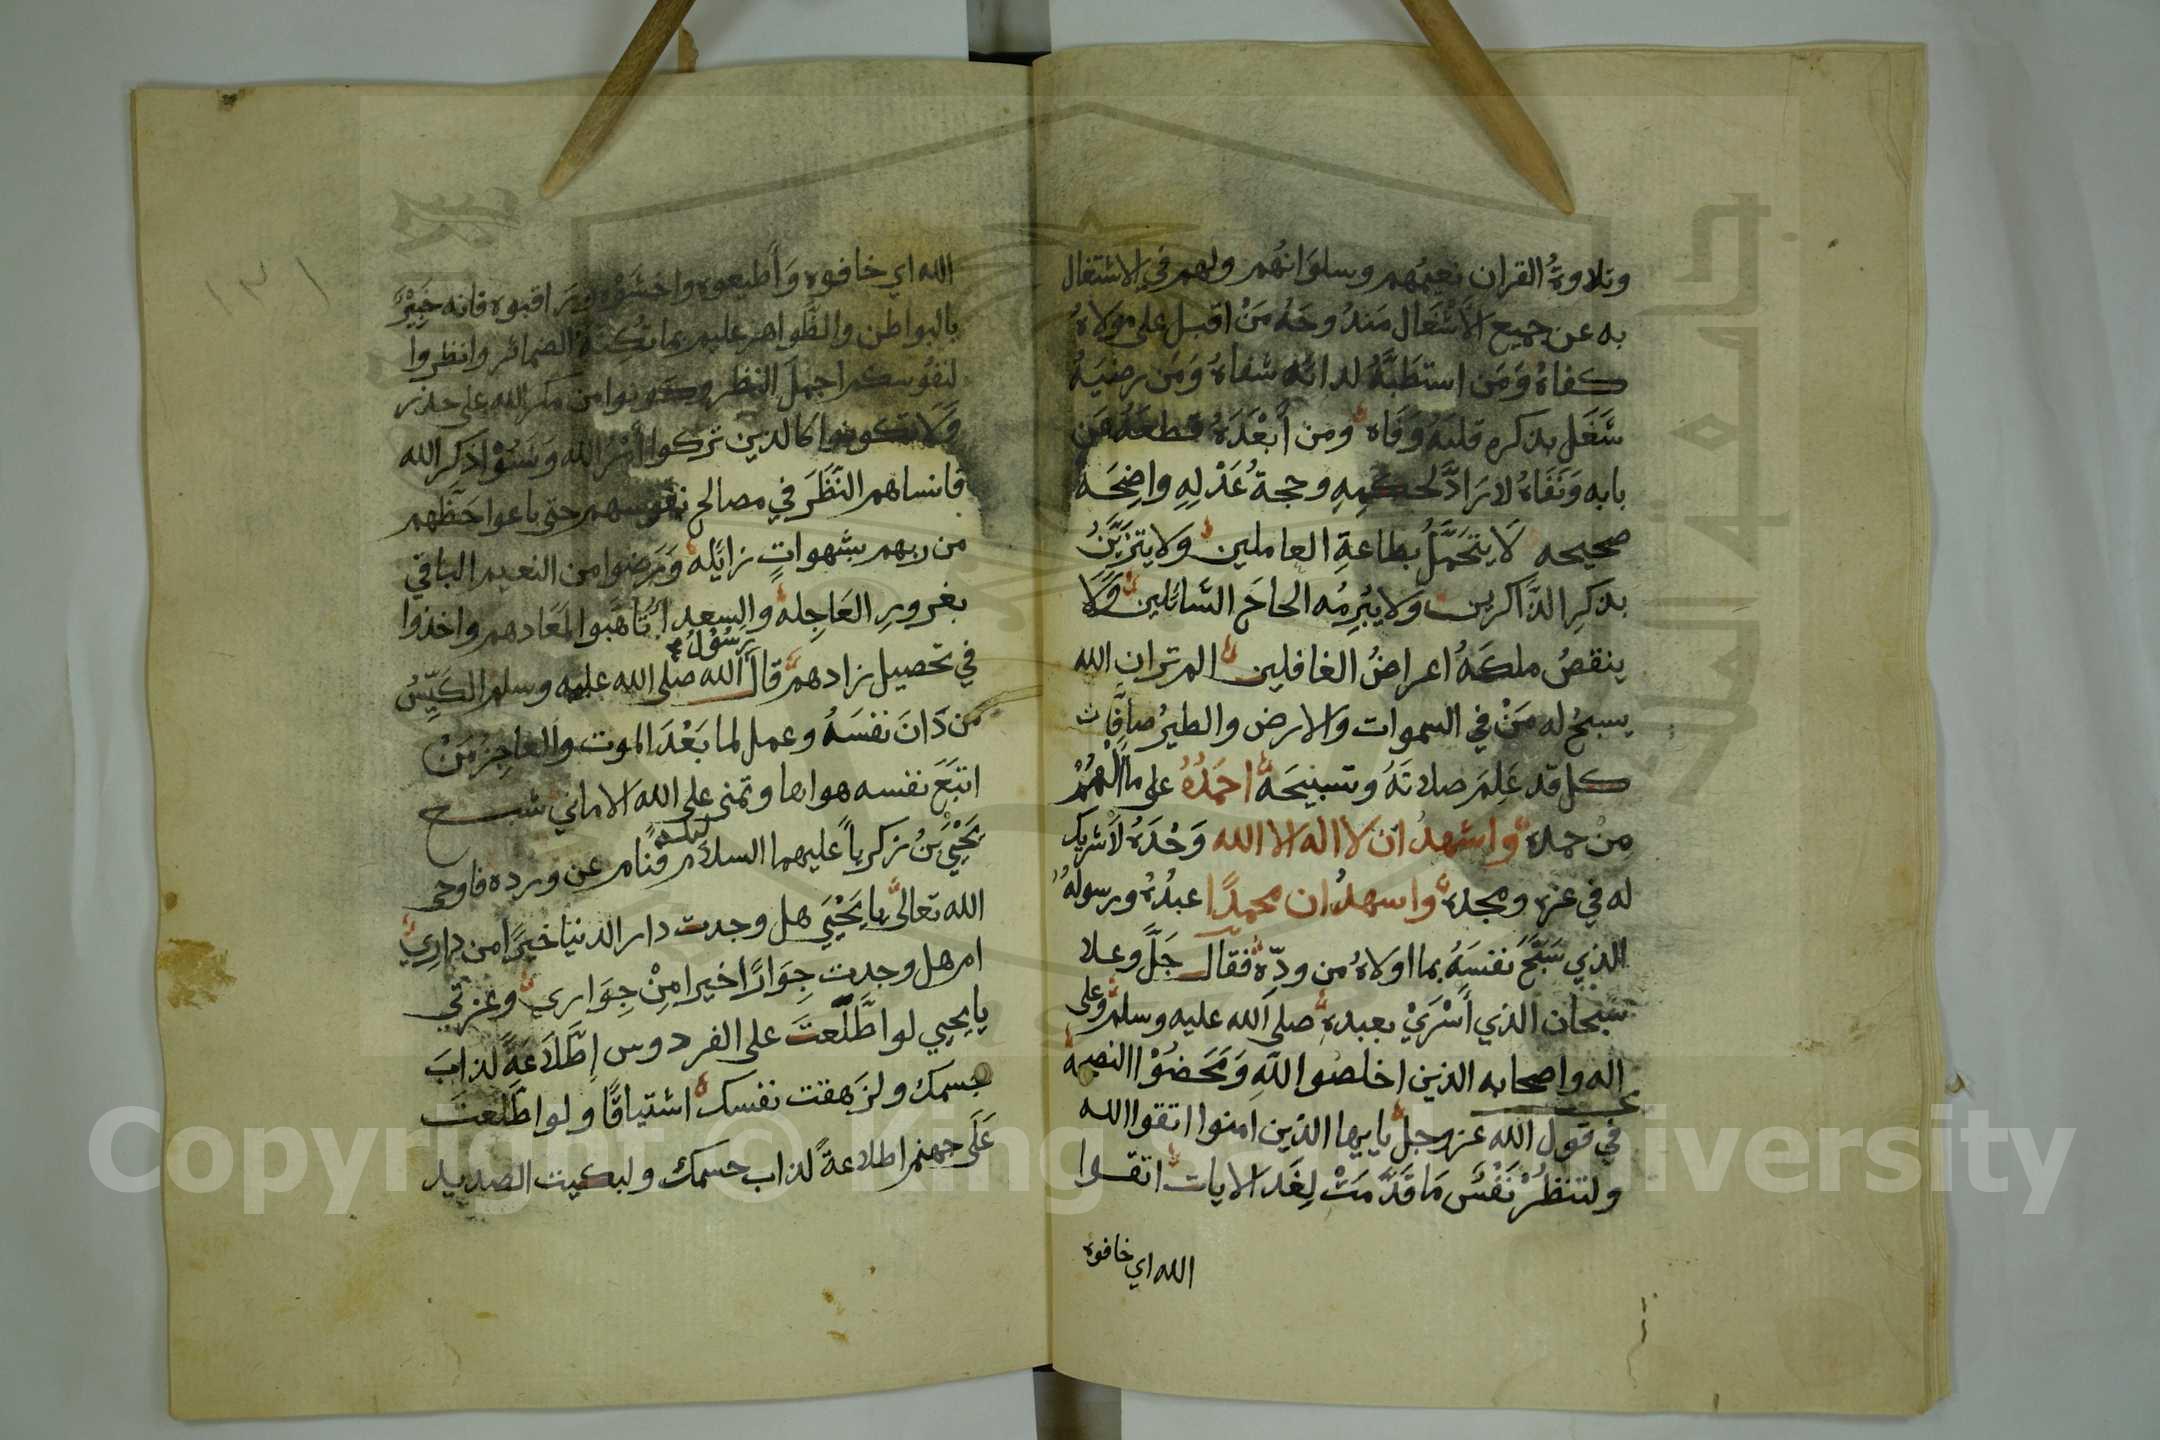 وتلاوةُ القران نعيمُهم وسلوانُهم ولهم في الاشتغال
به عن جميع الأشغال مَندُوحَهُ مَنْ اقبل على مولاهُ
كفاهُ وَمَن استطَبَّهُ لدائه شفاهُ وَمَن رضيَهُ
شَغَل بذكره قلبَه وَفَاه ومن أَبْعَدَهُ قطعَهُ عن
بابه وَنَفَاهُ لا رَادَّ لحكمِهِ وحجةُ عَدْلِهِ واضِحَه
صحيحه لَا يتجَمَّلُ بطاعةِ العاملين ولا يتزَيَّنُ
بذكِرِ الذَّاكرين ولا يُبْرِمُه الحاحُ السَّائلين وَلَا
ينقصُ ملكَهُ اعراضُ الغافلين الم تر ان الله
يسبحُ له مَنْ في السموات والارض والطيرُ صافَّات
كل قد عَلِمَ صلاتَهُ وتسبيحَهُ احمَدُهُ على ما الْهَمَ
مِنْ حمده واشهدُ ان لا اله الا الله وَحْدَهُ لَا شريك
له في عزه ومجده واشهدُ ان محمدًا عبدُهُ ورسولُهُ
الذي سَبَّحَ نفسَهُ بما اولاهُ من وِدِّه فقال جَلَّ وعلا
سبحان الذي أَسْرَيْ بعبده صلى الله عليه وسلم وعلى
اله واصحابه الذين اخلصوا للهِ وَمَحَضُوْا النصيحة
في قول الله عز وجل يا يها الذين امنوا اتقوا الله
ولتنظُرْ نَفْسٌ مَا قَدَّمَتْ لِغَد الايات اتقوا
الله اي خافوه
الله اي خافوه وَأطيعوه واخشَوْهُ ورَاقبوه فانه خَبِيْرٌ
بالبواطن والظَّواهر عليم بما تُكِنُّه الضمائر وانظروا
لنفوسكم اجملَ النظر وكونوا من مكر الله على حذر
وَلَا تكونوا كالذين تركوا أَمْرَ الله وَنَسَوْا ذِكِرَ الله
فانساهم النَّظَرَ في مصالح نفوسهم حتى باعوا حَظَّهم
من ربهم بشهواتٍ زايَله وَرَضوا من النعيم الباقي
بغرورِ العَاجِله والسعدا تَأَهَّبوا لمَعَادهم واخذوا
في تحصيل زادهم قال رسُوْلُ الله صلى الله عليه وسلم الكَيِّسُ
مَن دَانَ نفسَهُ وعمل لما بَعْدَ الموت والعاجِزُ مَنْ
اتبَعَ نفسه هواها وتمنى على الله الاماني شبع
يَحْيَي بنُ زكرياً عليهما السلام ليلةً فنام عن ورده فاوحى
الله تعالى يا يَحْيَي هل وجدت دار الدنيا خيرًا من داري
ام هل وجدت جِوَارًا خيرا مِنْ جِوَاري وعزتي
يا يحيي لو اطَّلَعتَ على الفردوس إطِّلَاعَةً لذابَ
جسمك ولزهقت نفسك اشتياقًا ولو اطَلَعتَ
عَلَى جهنم اطلاعةً لذاب جسمك ولبكيت الصديد
Copyright © King Saud University
جامعة الملك سعود